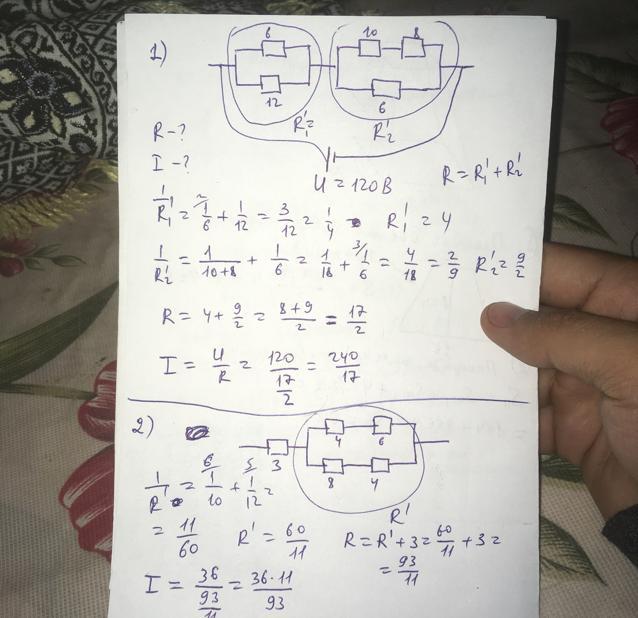 1)
6
12
10 8
6
R₁' =
R₂'
R - ?
I - ?
U = 120 В
R = R₁' + R₂'
1/R₁' = ²/1/6 + 1/12 = 3/12 = 1/4 R₁' = 4
1/R₂' = 1/(10+8) + 1/6 = 1/18 + ³/1/6 = 4/18 = 2/9 R₂' = 9/2
R = 4 + 9/2 = (8+9)/2 = 17/2
I = U/R = 120/(17/2) = 240/17
2)
3
4 6
8 4
R'
1/R' = ⁶/1/10 + ⁵/1/12 =
= 11/60 R' = 60/11 R = R' + 3 = 60/11 + 3 =
= 93/11
I = 36/(93/11) = 36·11/93